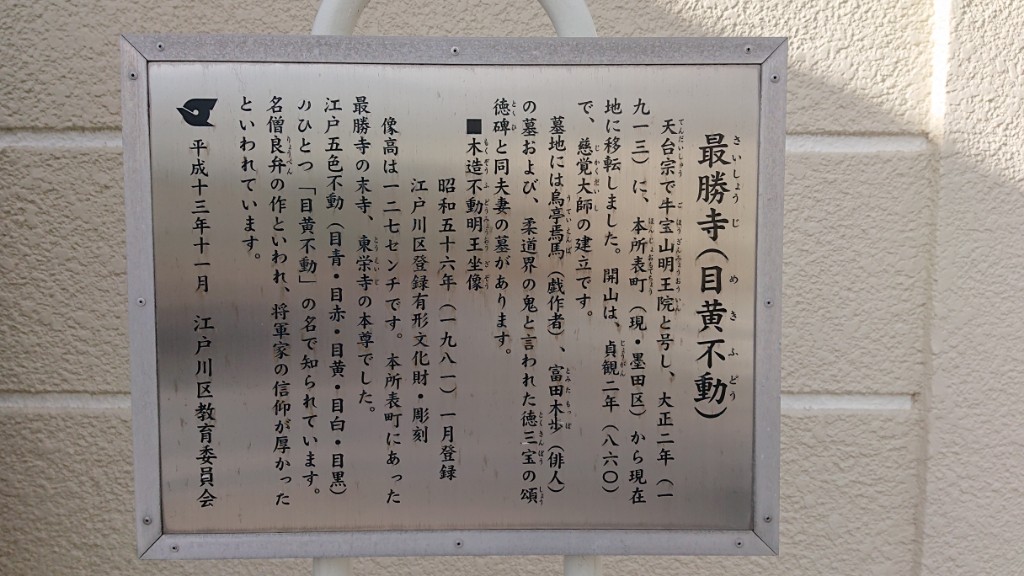 最勝寺(目黄不動)
天台宗で牛宝山明王院と号し、大正二年(一
九一三)に、本所表町(現・墨田区)から現在
地に移転しました。開山は、貞観二年(八六〇)
で、慈覚大師の建立です。
墓地には烏亭焉馬(戯作者)、富田木歩(俳人)
の墓および、柔道界の鬼と言われた徳三宝の頌
徳碑と同夫妻の墓があります。
■木造不動明王坐像
昭和五十六年(一九八一)一月登録
江戸川区登録有形文化財・彫刻
像高は一二七センチです。本所表町にあった
最勝寺の末寺、東栄寺の本尊でした。
江戸五色不動(目青・目赤・目黄・目白・目黒)
のひとつ「目黄不動」の名で知られています。
名僧良弁の作といわれ、将軍家の信仰が厚かった
といわれています。
平成十三年十一月 江戸川区教育委員会